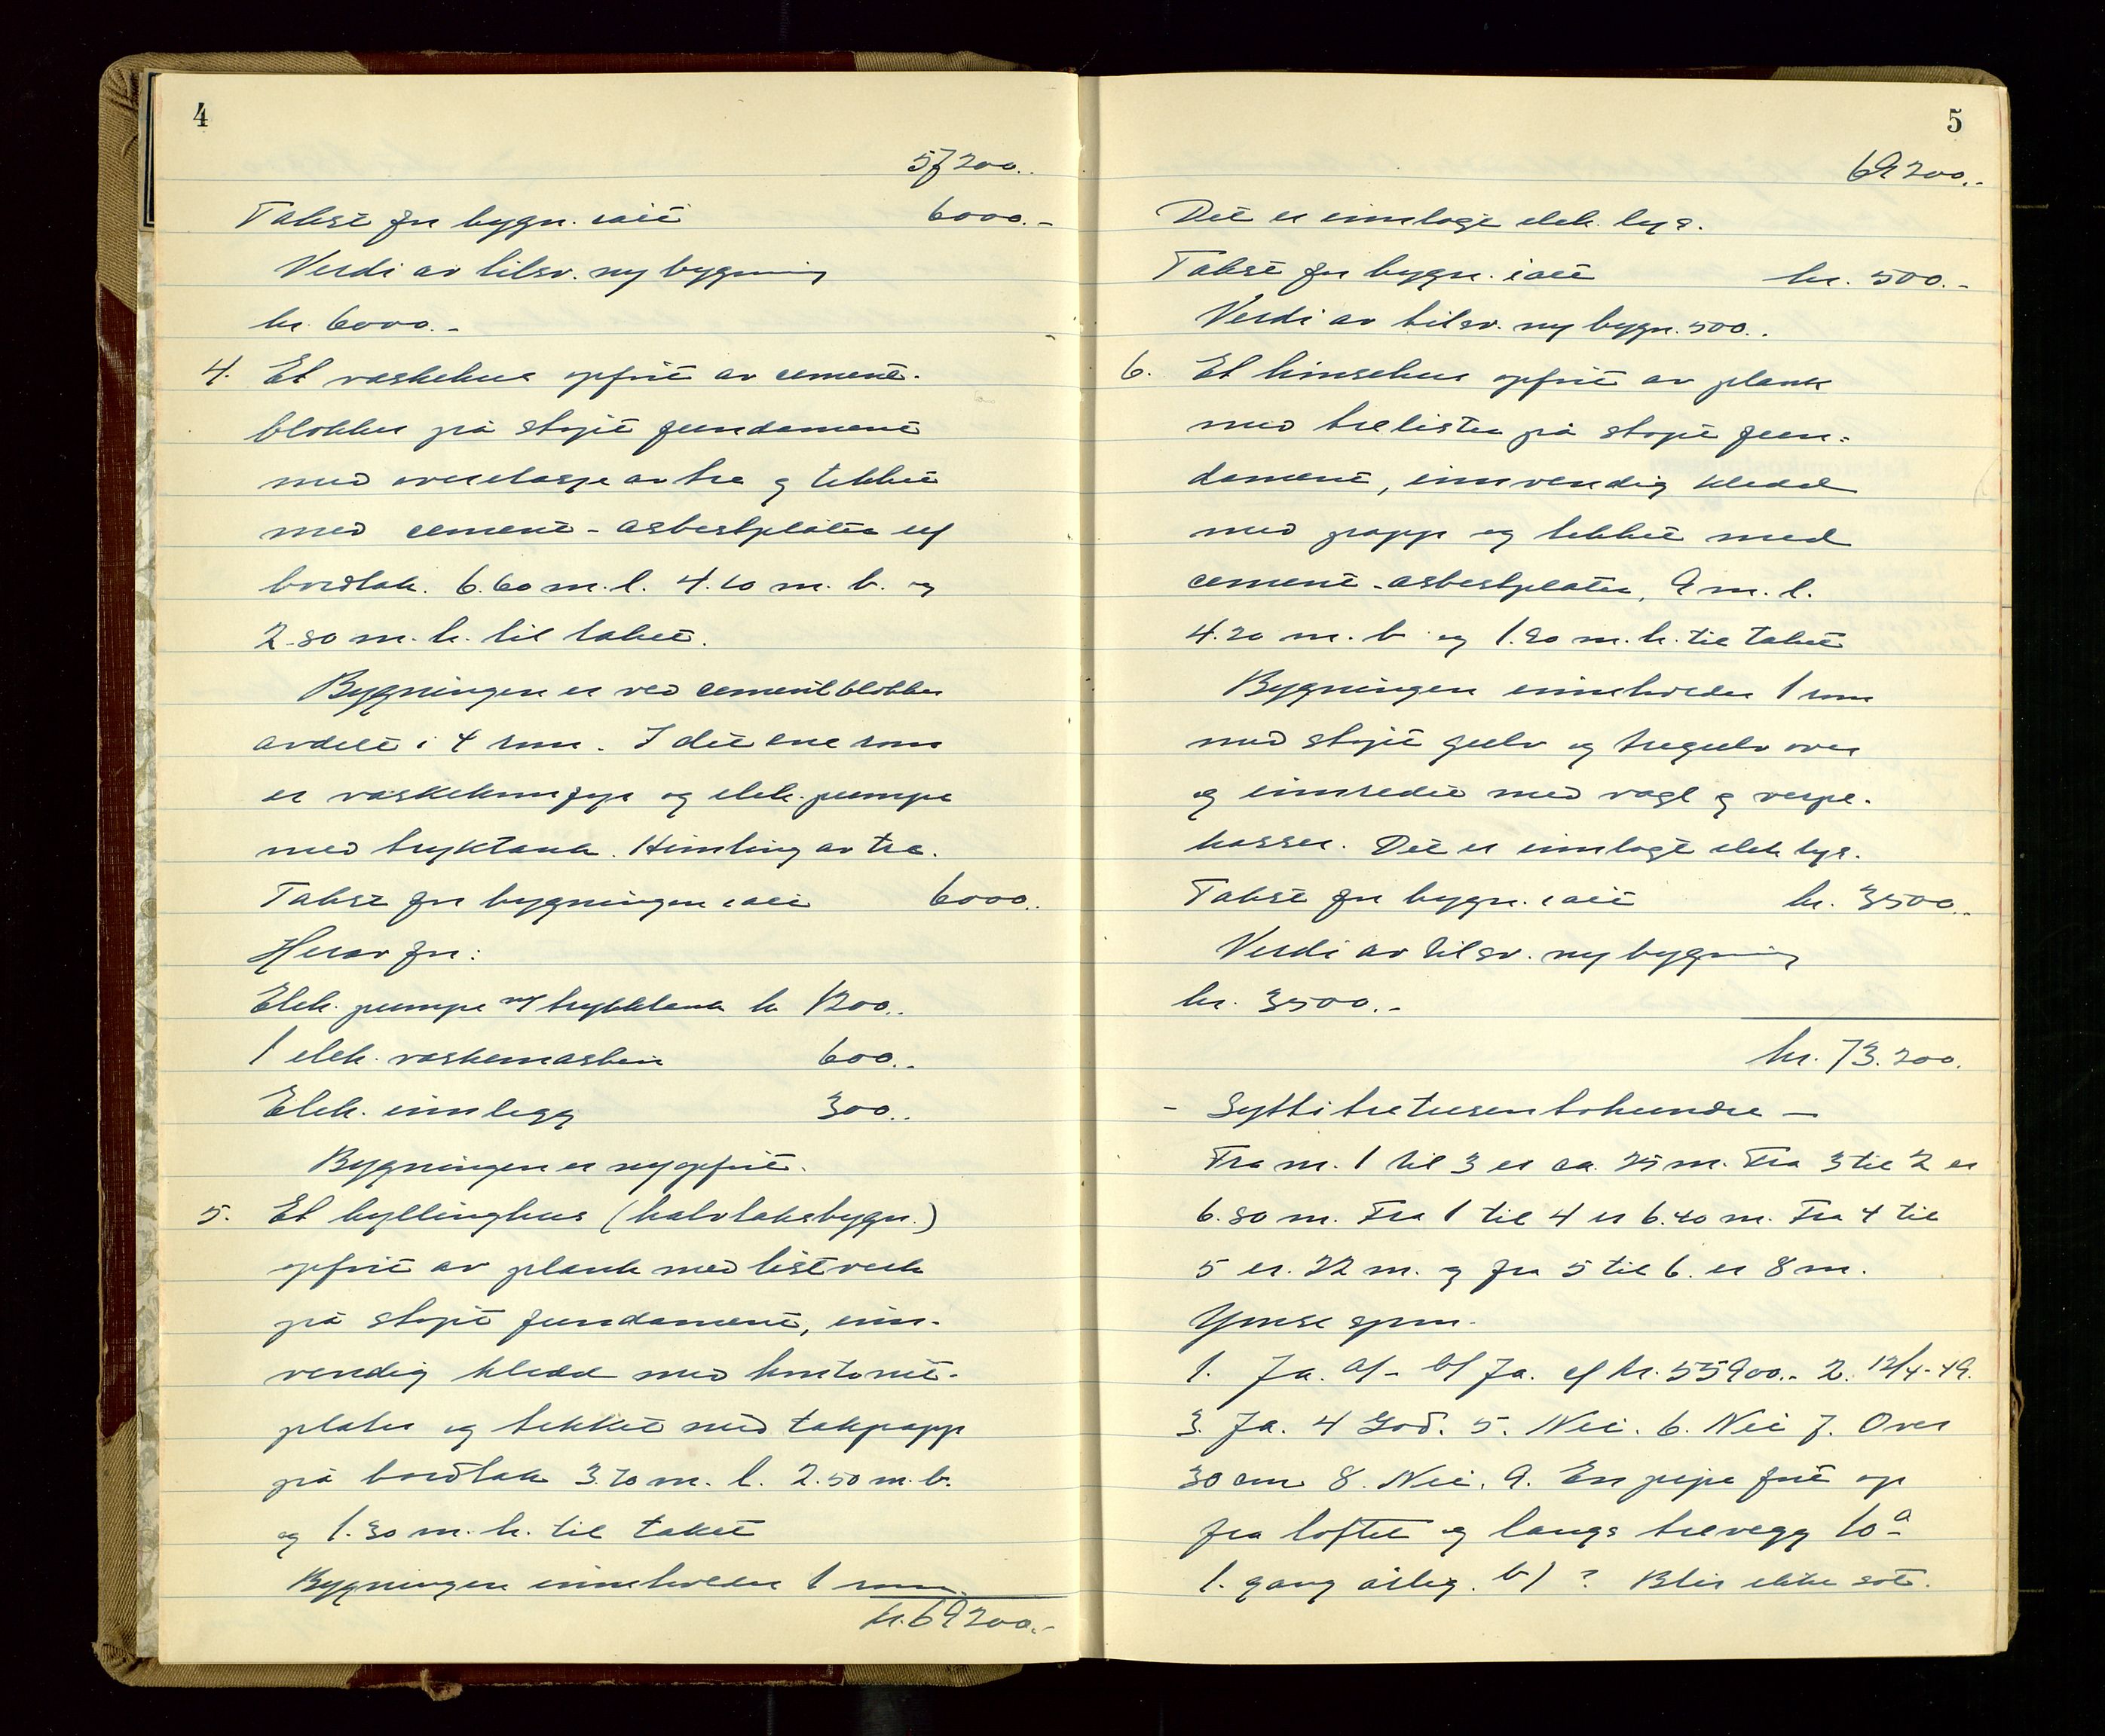 4
57200.-
Takst for bygn. i alt 6000.-
Verdi av tilsv. ny bygning
kr. 6000.-
4. Et vaskehus opført av cement-
blokker på støpt fundament
med overetasje av tre og tekket
med cement-asbestplater uf
bordtak. 6.60 m. l. 4.10 m. b. og
2.80 m. h. til taket.
Bygningen er ved cementblokker
avdelt i 4 rom. I det ene rom
er vaskekum og elek. pumpe
med tryktank. Himling av tre.
Takst for bygningen i alt 6000.-
Herav for:
Elek. pumpe m/ trykktank kr 1200.-
1 elek. vaskemaskin 600.-
Elek. innlegg 300.-
Bygningen er ny opført.
5. Et kyllinghus (halvtaksbygn.)
opført av plank med listverk
på støpt fundament, inn-
vendig kledd med huntonit-
plater og tekket med takpapp
på bordtak 3.70 m. l. 2.50 m. b.
og 1.30 m. h. til taket
Bygningen inneholder 1 rom.
kr. 69200.-
5
69200.-
Det er innlagt elek. lys.
Takst for bygn. i alt kr. 500.-
Verdi av tilsv. ny bygn. 500.-
6. Et hønsehus opført av plank
med trelister på støpt fun-
dament, innvendig kledd
med papp og tekket med
cement-asbestplater, 9 m. l.
4.20 m. b og 1.90 m. h. til taket
Bygningen inneholder 1 rom
med støpt gulv og tregulv over
og innredet med vagl og verpe-
kasser. Det er innlagt elek lys.
Takst for bygn. i alt kr. 3500.-
Verdi av tilsv. ny bygning
kr. 3500.-
kr. 73.200.
- Syttitretusentohundre -
Fra nr. 1 til 3 er ca. 25 m. Fra 3 til 2 er
6.80 m. Fra 1 til 4 er 6.40 m. Fra 4 til
5 er. 22 m. og fra 5 til 6. er 8 m.
Ymse spm.
1. Ja. a/- b/ Ja. c/ kr. 55900.- 2. 12/4-49.
3. Ja. 4 God. 5. Nei. 6. Nei 7. Over
30 cm 8. Nei. 9. En pipe ført op
fra loftet og langs trevegg 10a-
1. gang årlig. b) ? Blir ikke sot.